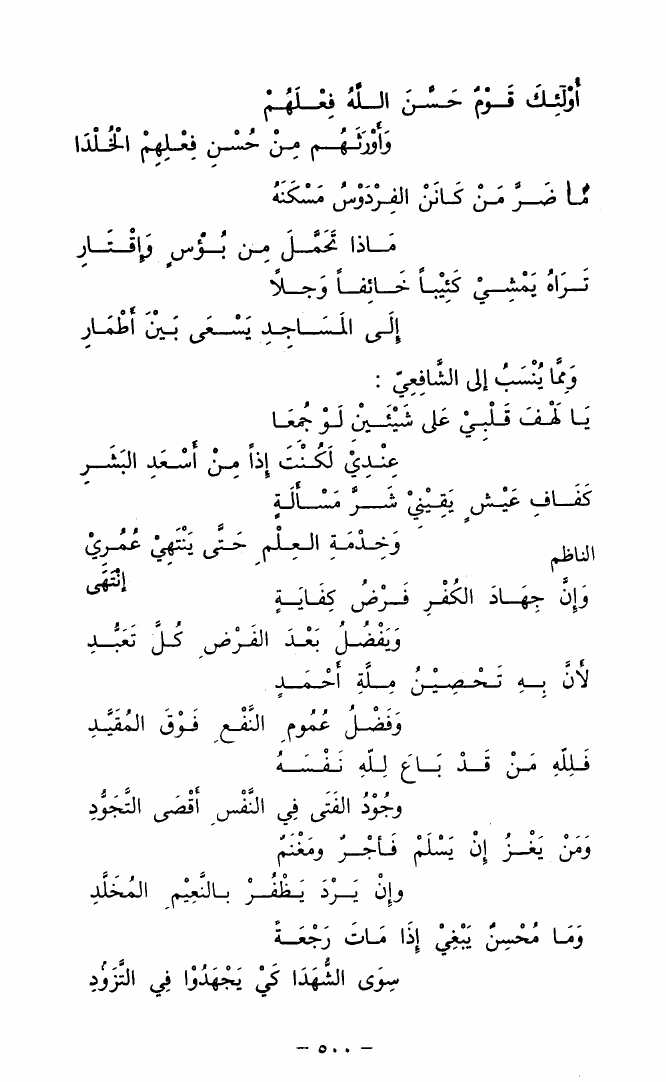 أُولَٰئِكَ قَوْمٌ حَسَّنَ اللَّهُ فِعْلَهُمْ
وَأَوْرَثَهُم مِنْ حُسْنِ فِعْلِهِمْ الْخُلْدَا
مَا ضَرَّ مَنْ كَانَنْ الفِرْدَوْسُ مَسْكَنَهُ
مَاذا تَحَمَّلَ مِن بُؤْسٍ وَإِقْتَارِ
تَرَاهُ يَمْشِيْ كَئِيْباً خَائِفاً وَجِلاً
إِلى المَسَاجِدِ يَسْعَى بَيْنَ أَطْمَارِ
وَمِمَّا يُنْسَبُ إلى الشَّافِعِيّ :
يَا لَهْفَ قَلْبِيْ عَلى شَيْئَيْنِ لَوْ جُمِعَا
عِنْدِيْ لَكُنْتُ إِذاً مِنْ أَسْعَدِ البَشَرِ
كَفَافِ عَيْشٍ يَقِيْنِيْ شَرَّ مَسْأَلَةٍ
وَخِدْمَةِ العِلْمِ حَتَّى يَنْتَهِيْ عُمُرِيْ
إنْتَهَى
الناظم
وَإِنَّ جِهَادَ الكُفْرِ فَرْضُ كِفَايَةٍ
وَيَفْضُلُ بَعْدَ الفَرْضِ كُلَّ تَعَبُّدِ
لأَنَّ بِهِ تَحْصِيْنُ مِلَّةِ أَحْمَدٍ
وَفَضْلُ عُمُومِ النَّفْعِ فَوْقَ المُقَيَّدِ
فَلِلّهِ مَنْ قَدْ بَاعَ لِلّهِ نَفْسَهُ
وجُوْدُ الفَتَى فِي النَّفْسِ أَقْصَى التَّجَوُّدِ
وَمَنْ يَغْزُ إِنْ يَسْلَمْ فَأَجْرٌ ومَغْنَمٌ
وإِنْ يَرْدَ يَظْفُرْ بِالنَّعِيْمِ المُخَلَّدِ
وَمَا مُحْسِنٌ يَبْغِيْ إِذَا مَاتَ رَجْعَةً
سِوَى الشُّهَدَا كَيْ يَجْهَدُوْا فِي التَّزَوُّدِ
— ٥٠٠ —